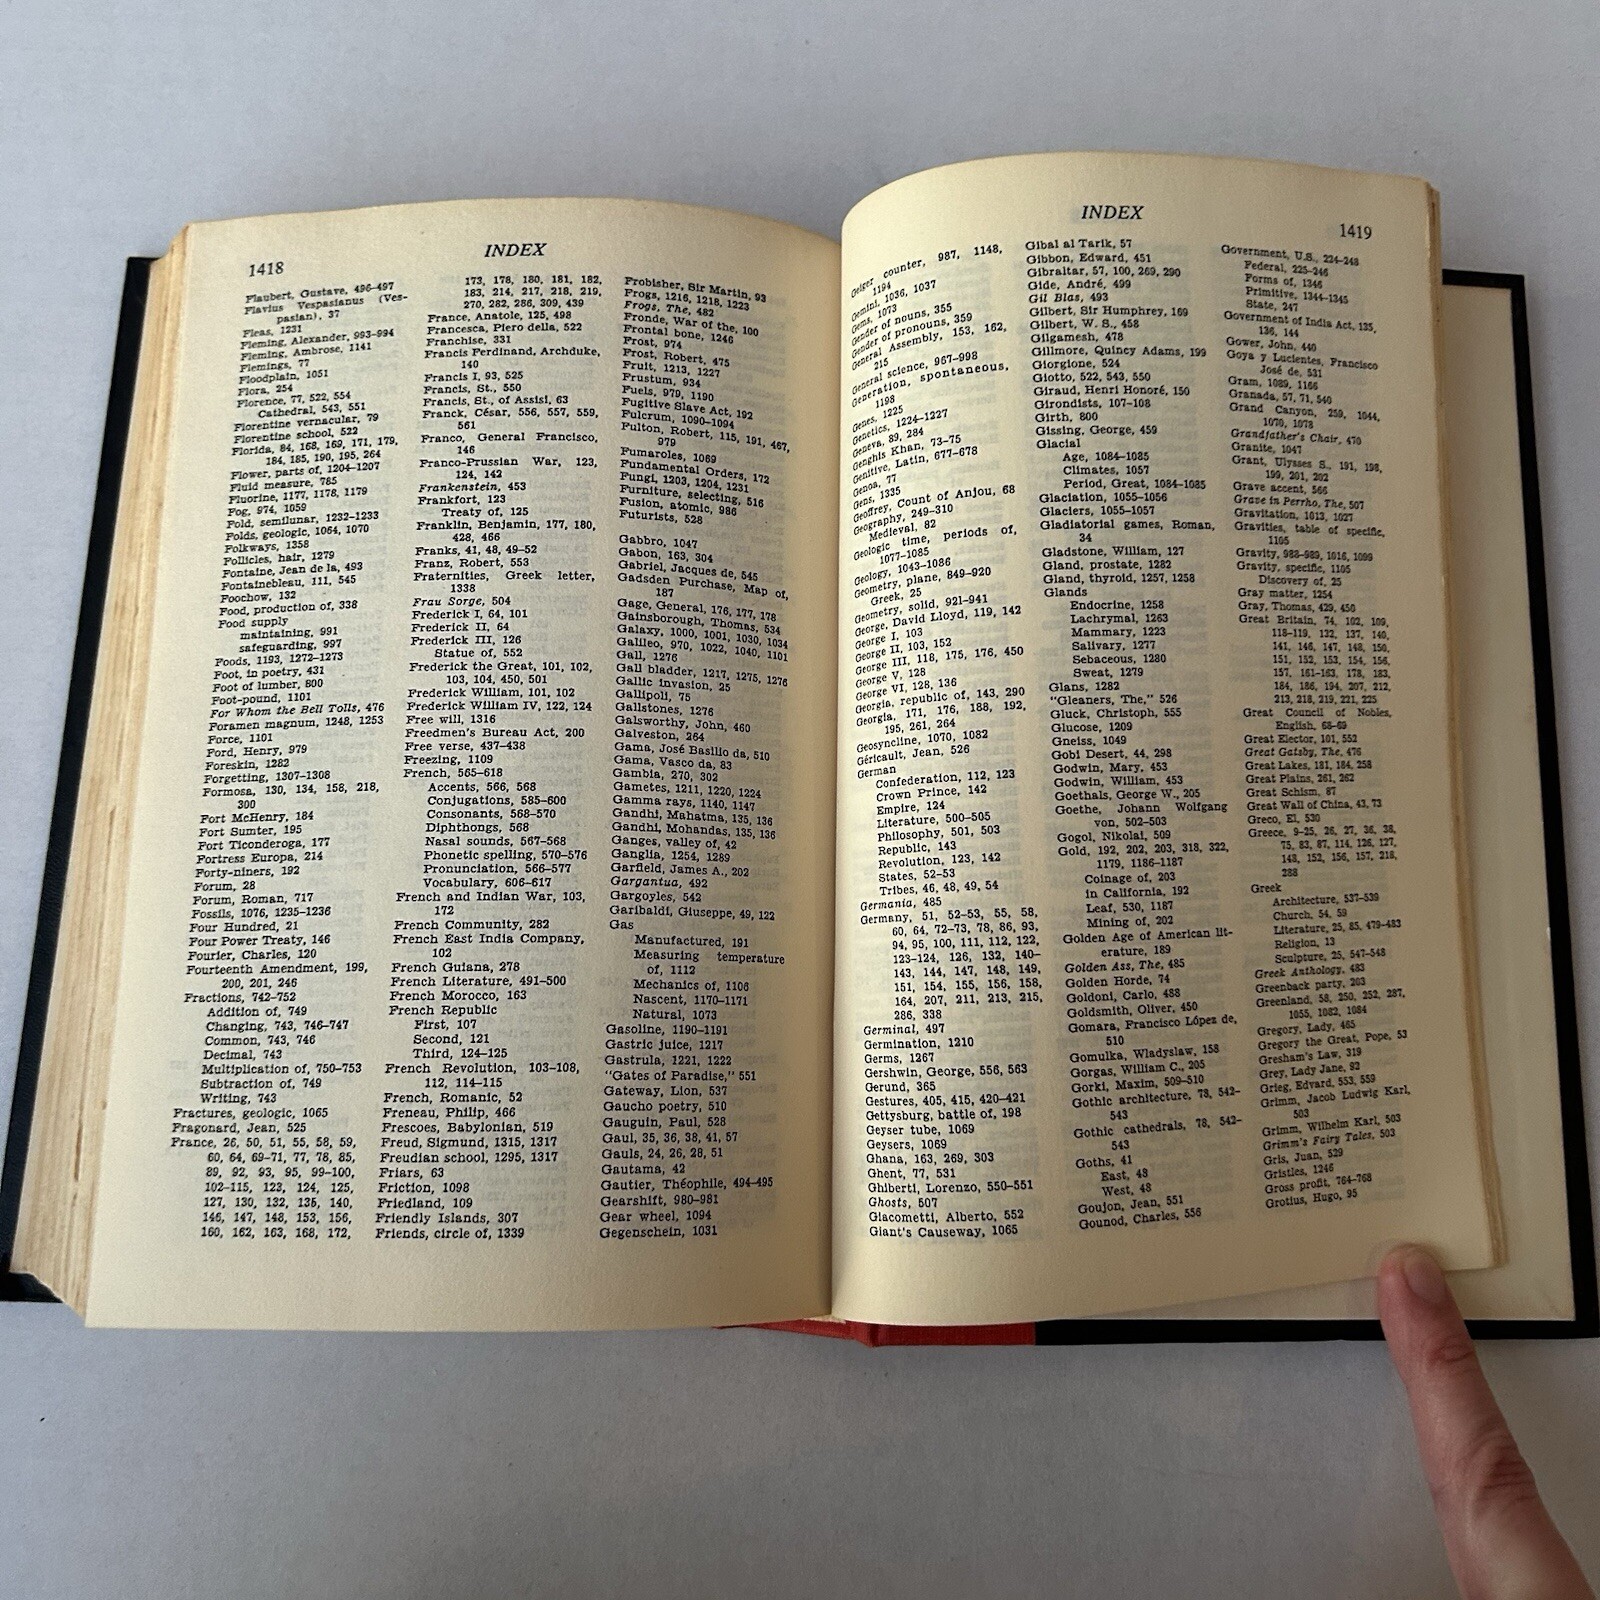 1418
INDEX
Flaubert, Gustave, 496–497
Flavius Vespasianus (Ves-
pasian), 37
Fleas, 1231
Fleming, Alexander, 993–994
Fleming, Ambrose, 1141
Flemings, 77
Floodplain, 1051
Flora, 254
Florence, 77, 522, 554
Cathedral, 543, 551
Florentine vernacular, 79
Florentine school, 522
Florida, 84, 168, 169, 171, 179,
184, 185, 190, 195, 264
Flower, parts of, 1204–1207
Fluid measure, 785
Fluorine, 1177, 1178, 1179
Fog, 974, 1059
Fold, semilunar, 1232–1233
Folds, geologic, 1064, 1070
Folkways, 1358
Follicles, hair, 1279
Fontaine, Jean de la, 493
Fontainebleau, 111, 545
Foochow, 132
Food, production of, 338
Food supply
maintaining, 991
safeguarding, 997
Foods, 1193, 1272–1273
Foot, in poetry, 431
Foot of lumber, 800
Foot-pound, 1101
For Whom the Bell Tolls, 476
Foramen magnum, 1248, 1253
Force, 1101
Ford, Henry, 979
Foreskin, 1282
Forgetting, 1307–1308
Formosa, 130, 134, 158, 218,
300
Fort McHenry, 184
Fort Sumter, 195
Fort Ticonderoga, 177
Fortress Europa, 214
Forty-niners, 192
Forum, 28
Forum, Roman, 717
Fossils, 1076, 1235–1236
Four Hundred, 21
Four Power Treaty, 146
Fourier, Charles, 120
Fourteenth Amendment, 199,
200, 201, 246
Fractions, 742–752
Addition of, 749
Changing, 743, 746–747
Common, 743, 746
Decimal, 743
Multiplication of, 750–753
Subtraction of, 749
Writing, 743
Fractures, geologic, 1065
Fragonard, Jean, 525
France, 26, 50, 51, 55, 58, 59,
60, 64, 69–71, 77, 78, 85,
89, 92, 93, 95, 99–100,
102–115, 123, 124, 125,
127, 130, 132, 135, 140,
146, 147, 148, 153, 156,
160, 162, 163, 168, 172,
173, 178, 180, 181, 182,
183, 214, 217, 218, 219,
270, 282, 286, 309, 439
France, Anatole, 125, 498
Francesca, Piero della, 522
Franchise, 331
Francis Ferdinand, Archduke,
140
Francis I, 93, 525
Francis, St., 550
Francis, St., of Assisi, 63
Franck, César, 556, 557, 559,
561
Franco, General Francisco,
146
Franco-Prussian War, 123,
124, 142
Frankenstein, 453
Frankfort, 123
Treaty of, 125
Franklin, Benjamin, 177, 180,
428, 466
Franks, 41, 48, 49–52
Franz, Robert, 553
Fraternities, Greek letter,
1338
Frau Sorge, 504
Frederick I, 64, 101
Frederick II, 64
Frederick III, 126
Statue of, 552
Frederick the Great, 101, 102,
103, 104, 450, 501
Frederick William, 101, 102
Frederick William IV, 122, 124
Free will, 1316
Freedmen's Bureau Act, 200
Free verse, 437–438
Freezing, 1109
French, 565–618
Accents, 566, 568
Conjugations, 585–600
Consonants, 568–570
Diphthongs, 568
Nasal sounds, 567–568
Phonetic spelling, 570–576
Pronunciation, 566–577
Vocabulary, 606–617
French and Indian War, 103,
172
French Community, 282
French East India Company,
102
French Guiana, 278
French Literature, 491–500
French Morocco, 163
French Republic
First, 107
Second, 121
Third, 124–125
French Revolution, 103–108,
112, 114–115
French, Romanic, 52
Freneau, Philip, 466
Frescoes, Babylonian, 519
Freud, Sigmund, 1315, 1317
Freudian school, 1295, 1317
Friars, 63
Friction, 1098
Friedland, 109
Friendly Islands, 307
Friends, circle of, 1339
Frobisher, Sir Martin, 93
Frogs, 1216, 1218, 1223
Frogs, The, 482
Fronde, War of the, 100
Frontal bone, 1246
Frost, 974
Frost, Robert, 475
Fruit, 1213, 1227
Frustum, 934
Fuels, 979, 1190
Fugitive Slave Act, 192
Fulcrum, 1090–1094
Fulton, Robert, 115, 191, 467,
979
Fumaroles, 1069
Fundamental Orders, 172
Fungi, 1203, 1204, 1231
Furniture, selecting, 516
Fusion, atomic, 986
Futurists, 528
Gabbro, 1047
Gabon, 163, 304
Gabriel, Jacques de, 545
Gadsden Purchase, Map of,
187
Gage, General, 176, 177, 178
Gainsborough, Thomas, 534
Galaxy, 1000, 1001, 1030, 1034
Galileo, 970, 1022, 1040, 1101
Gall, 1276
Gall bladder, 1217, 1275, 1276
Gallic invasion, 25
Gallipoli, 75
Gallstones, 1276
Galsworthy, John, 460
Galveston, 264
Gama, José Basilio da, 510
Gama, Vasco da, 83
Gambia, 270, 302
Gametes, 1211, 1220, 1224
Gamma rays, 1140, 1147
Gandhi, Mahatma, 135, 136
Gandhi, Mohandas, 135, 136
Ganges, valley of, 42
Ganglia, 1254, 1289
Garfield, James A., 202
Gargantua, 492
Gargoyles, 542
Garibaldi, Giuseppe, 49, 122
Gas
Manufactured, 191
Measuring temperature
of, 1112
Mechanics of, 1106
Nascent, 1170–1171
Natural, 1073
Gasoline, 1190–1191
Gastric juice, 1217
Gastrula, 1221, 1222
"Gates of Paradise," 551
Gateway, Lion, 537
Gaucho poetry, 510
Gauguin, Paul, 528
Gaul, 35, 36, 38, 41, 57
Gauls, 24, 26, 28, 51
Gautama, 42
Gautier, Théophile, 494–495
Gearshift, 980–981
Gear wheel, 1094
Gegenschein, 1031
INDEX
1419
Geiger counter, 987, 1148,
1194
Gemini, 1036, 1037
Gems, 1073
Gender of nouns, 355
Gender of pronouns, 359
General Assembly, 153, 162,
215
General science, 967–998
Generation, spontaneous,
1198
Genes, 1225
Genetics, 1224–1227
Geneva, 89, 284
Genghis Khan, 73–75
Genitive, Latin, 677–678
Genoa, 77
Gens, 1335
Geoffrey, Count of Anjou, 68
Geography, 249–310
Medieval, 82
Geologic time, periods of,
1077–1085
Geology, 1043–1086
Geometry, plane, 849–920
Greek, 25
Geometry, solid, 921–941
George, David Lloyd, 119, 142
George I, 103
George II, 103, 152
George III, 118, 175, 176, 450
George V, 128
George VI, 128, 136
Georgia, republic of, 143, 290
Georgia, 171, 176, 188, 192,
195, 261, 264
Geosyncline, 1070, 1082
Géricault, Jean, 526
German
Confederation, 112, 123
Crown Prince, 142
Empire, 124
Literature, 500–505
Philosophy, 501, 503
Republic, 143
Revolution, 123, 142
States, 52–53
Tribes, 46, 48, 49, 54
Germania, 485
Germany, 51, 52–53, 55, 58,
60, 64, 72–73, 78, 86, 93,
94, 95, 100, 111, 112, 122,
123–124, 126, 132, 140–
143, 144, 147, 148, 149,
151, 154, 155, 156, 158,
164, 207, 211, 213, 215,
286, 338
Germinal, 497
Germination, 1210
Germs, 1267
Gershwin, George, 556, 563
Gerund, 365
Gestures, 405, 415, 420–421
Gettysburg, battle of, 198
Geyser tube, 1069
Geysers, 1069
Ghana, 163, 269, 303
Ghent, 77, 531
Ghiberti, Lorenzo, 550–551
Ghosts, 507
Giacometti, Alberto, 552
Giant's Causeway, 1065
Gibal al Tarik, 57
Gibbon, Edward, 451
Gibraltar, 57, 100, 269, 290
Gide, André, 499
Gil Blas, 493
Gilbert, Sir Humphrey, 169
Gilbert, W. S., 458
Gilgamesh, 478
Gillmore, Quincy Adams, 199
Giorgione, 524
Giotto, 522, 543, 550
Giraud, Henri Honoré, 150
Girondists, 107–108
Girth, 800
Gissing, George, 459
Glacial
Age, 1084–1085
Climates, 1057
Period, Great, 1084–1085
Glaciation, 1055–1056
Glaciers, 1055–1057
Gladiatorial games, Roman,
34
Gladstone, William, 127
Gland, prostate, 1282
Gland, thyroid, 1257, 1258
Glands
Endocrine, 1258
Lachrymal, 1263
Mammary, 1223
Salivary, 1277
Sebaceous, 1280
Sweat, 1279
Glans, 1282
"Gleaners, The," 526
Gluck, Christoph, 555
Glucose, 1209
Gneiss, 1049
Gobi Desert, 44, 298
Godwin, Mary, 453
Godwin, William, 453
Goethals, George W., 205
Goethe, Johann Wolfgang
von, 502–503
Gogol, Nikolai, 509
Gold, 192, 202, 203, 318, 322,
1179, 1186–1187
Coinage of, 203
in California, 192
Leaf, 530, 1187
Mining of, 202
Golden Age of American lit-
erature, 189
Golden Ass, The, 485
Golden Horde, 74
Goldoni, Carlo, 488
Goldsmith, Oliver, 450
Gomara, Francisco López de,
510
Gomulka, Wladyslaw, 158
Gorgas, William C., 205
Gorki, Maxim, 509–510
Gothic architecture, 78, 542–
543
Gothic cathedrals, 78, 542–
543
Goths, 41
East, 48
West, 48
Goujon, Jean, 551
Gounod, Charles, 556
Government, U.S., 224–248
Federal, 225–246
Forms of, 1346
Primitive, 1344–1345
State, 247
Government of India Act, 135,
136, 144
Gower, John, 440
Goya y Lucientes, Francisco
José de, 531
Gram, 1089, 1166
Granada, 57, 71, 540
Grand Canyon, 259, 1044,
1070, 1078
Grandfather's Chair, 470
Granite, 1047
Grant, Ulysses S., 191, 198,
199, 201, 202
Grave accent, 566
Grave in Perrho, The, 507
Gravitation, 1013, 1027
Gravities, table of specific,
1105
Gravity, 988–989, 1016, 1099
Gravity, specific, 1105
Discovery of, 25
Gray matter, 1254
Gray, Thomas, 429, 450
Great Britain, 74, 102, 109,
118–119, 132, 137, 140,
141, 146, 147, 148, 150,
151, 152, 153, 154, 156,
157, 161–163, 178, 183,
184, 186, 194, 207, 212,
213, 218, 219, 221, 225
Great Council of Nobles,
English, 68–69
Great Elector, 101, 552
Great Gatsby, The, 476
Great Lakes, 181, 184, 258
Great Plains, 261, 262
Great Schism, 87
Great Wall of China, 43, 73
Greco, El, 530
Greece, 9–25, 26, 27, 36, 38,
75, 83, 87, 114, 126, 127,
148, 152, 156, 157, 218,
288
Greek
Architecture, 537–539
Church, 54, 59
Literature, 25, 85, 479–483
Religion, 13
Sculpture, 25, 547–548
Greek Anthology, 483
Greenback party, 203
Greenland, 58, 250, 252, 287,
1055, 1082, 1084
Gregory, Lady, 465
Gregory the Great, Pope, 53
Gresham's Law, 319
Grey, Lady Jane, 92
Grieg, Edvard, 553, 559
Grimm, Jacob Ludwig Karl,
503
Grimm, Wilhelm Karl, 503
Grimm's Fairy Tales, 503
Gris, Juan, 529
Gristles, 1246
Gross profit, 764–768
Grotius, Hugo, 95